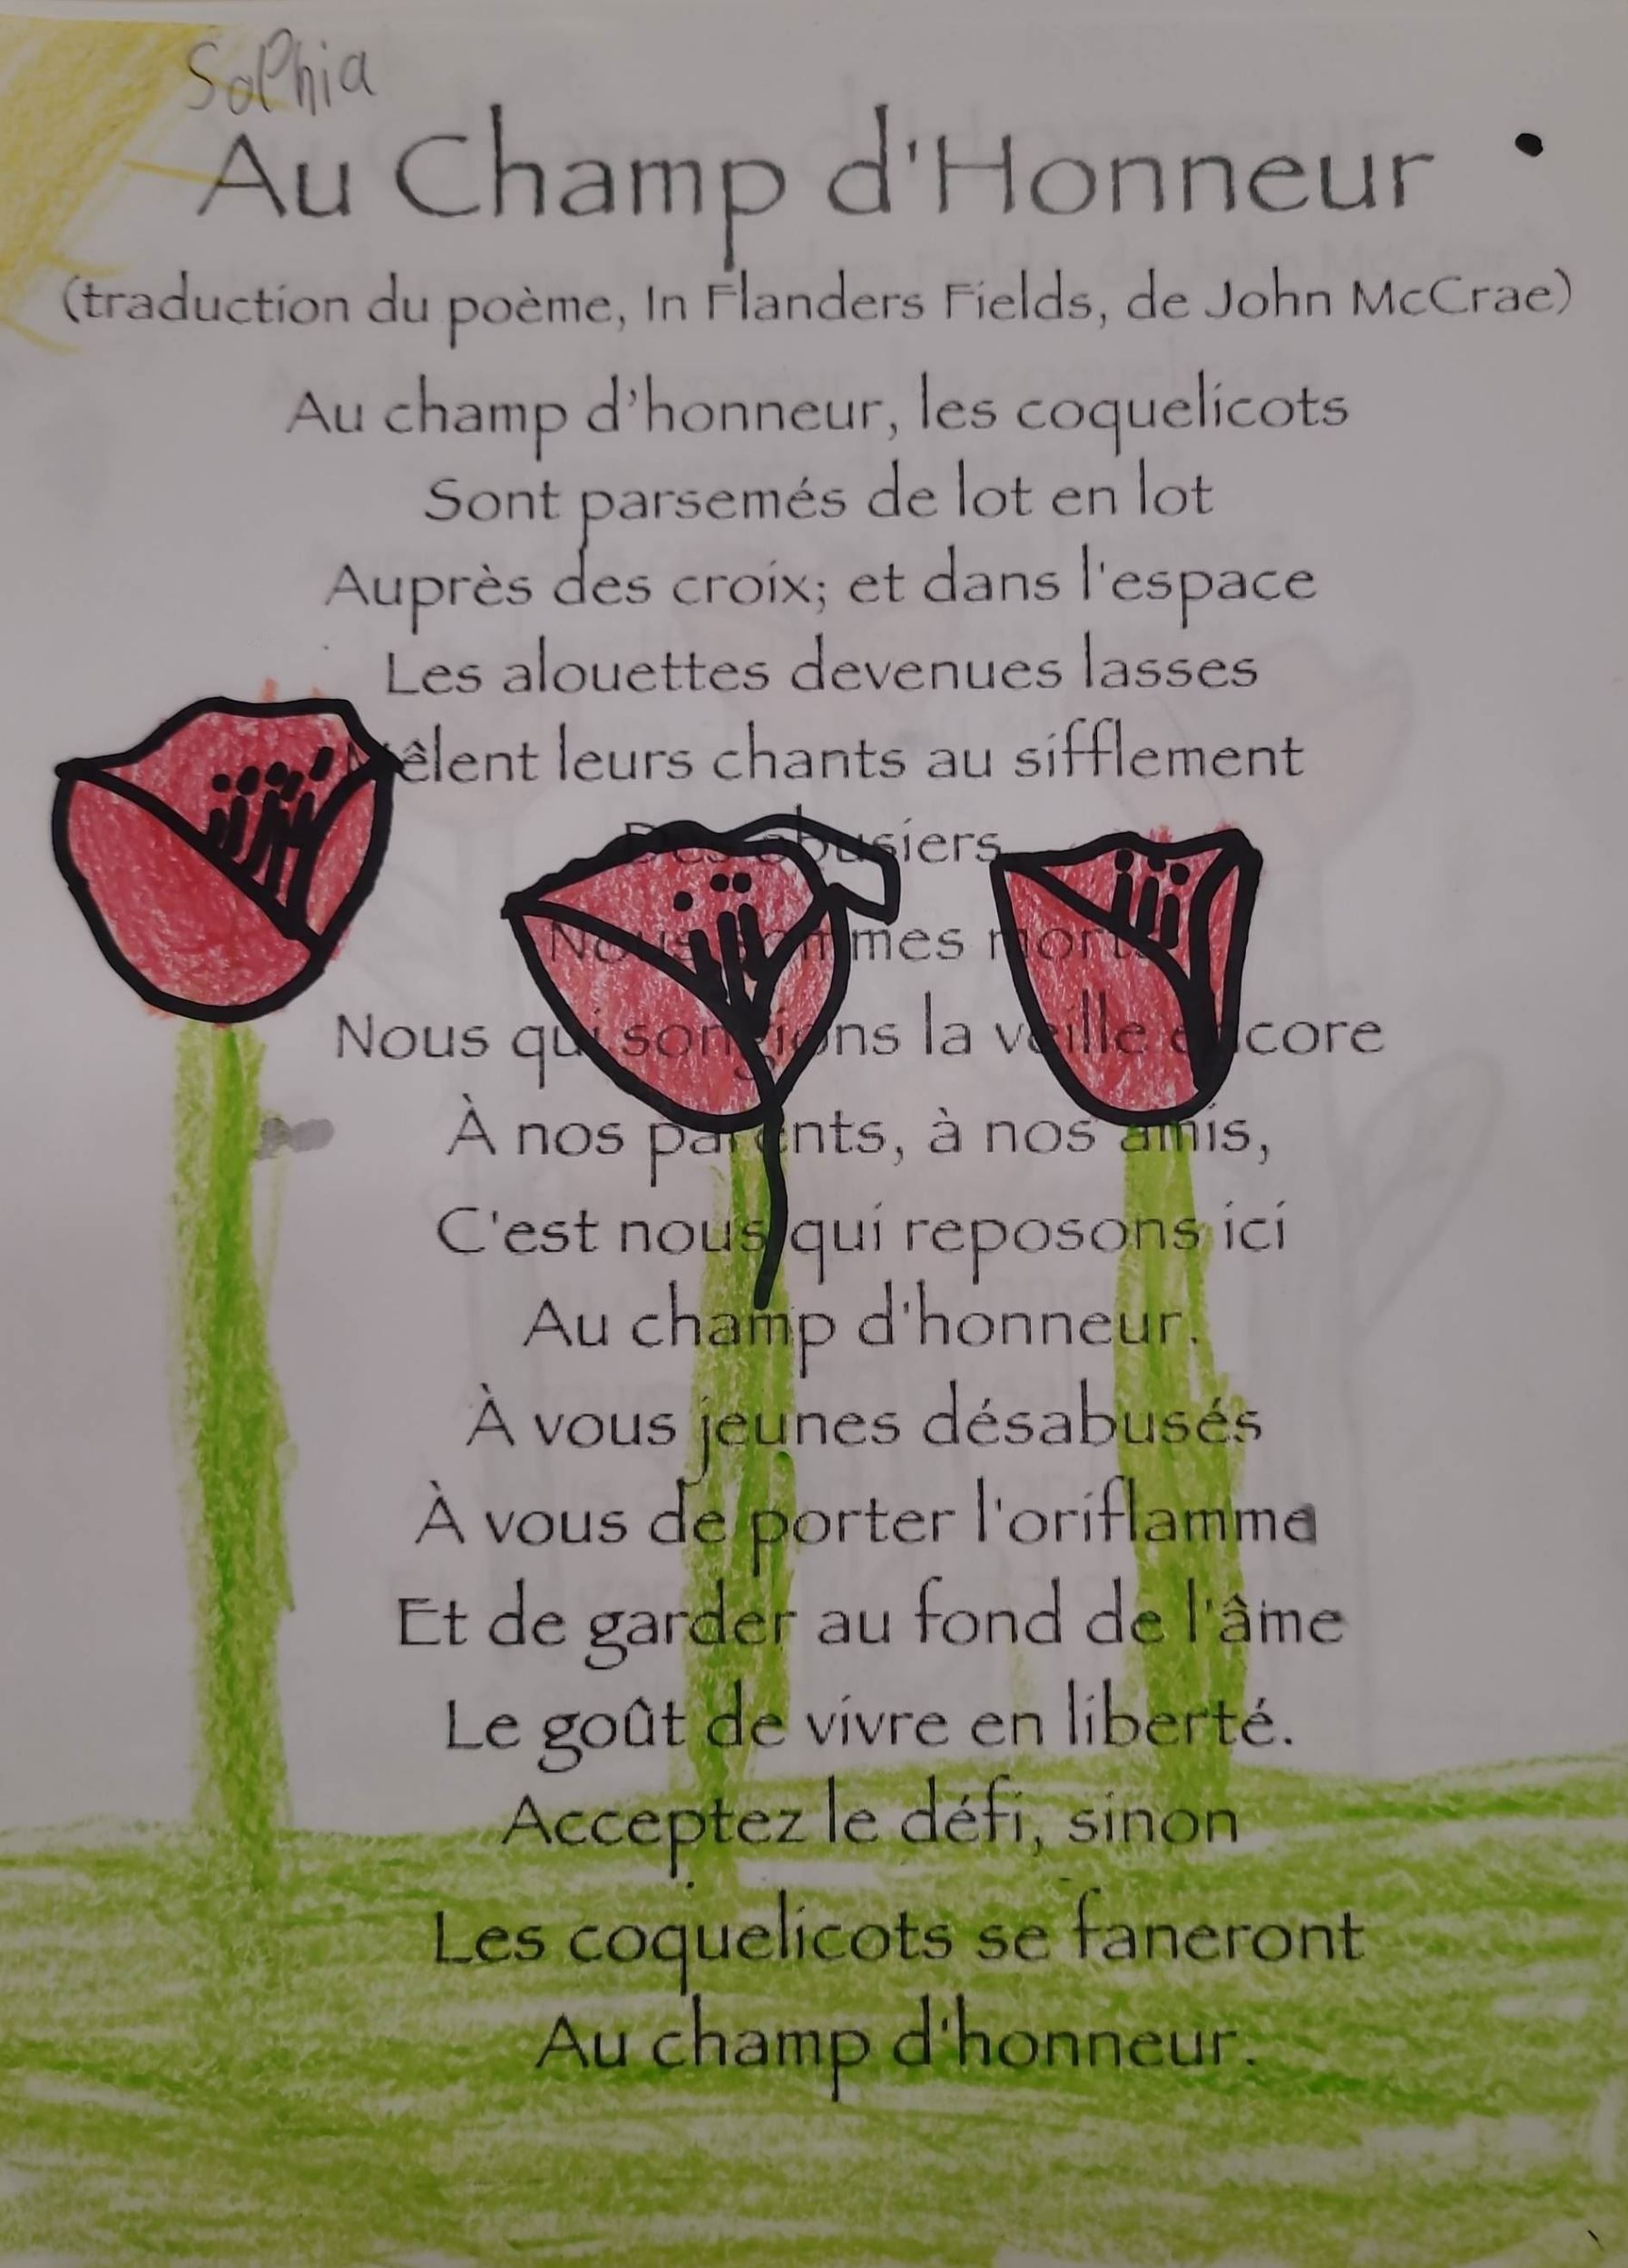 Sophia
Au Champ d'Honneur
(traduction du poème, In Flanders Fields, de John McCrae)
Au champ d'honneur, les coquelicots
Sont parsemés de lot en lot
Auprès des croix; et dans l'espace
Les alouettes devenues lasses
Mêlent leurs chants au sifflement
Des obusiers.
Nous sommes morts
Nous qui songions la veille encore
À nos parents, à nos amis,
C'est nous qui reposons ici
Au champ d'honneur.
À vous jeunes désabusés
À vous de porter l'oriflamme
Et de garder au fond de l'âme
Le goût de vivre en liberté.
Acceptez le défi, sinon
Les coquelicots se faneront
Au champ d'honneur.